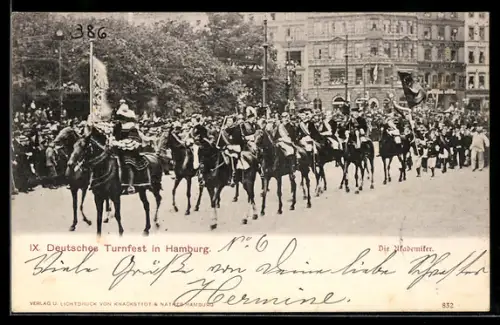 386
IX. Deutsches Turnfest in Hamburg.
No 6
Die Akademiker.
Viele Grüße von Deine liebe Schwester
Hermine.
VERLAG U. LICHTDRUCK VON KNACKSTEDT & NÄTHER, HAMBURG
852